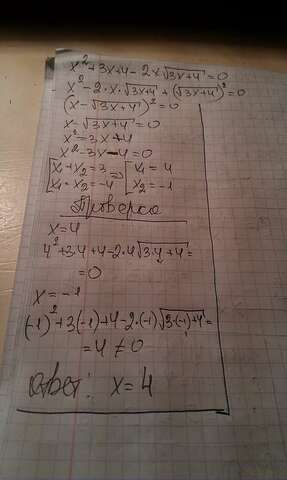 x² + 3x + 4 - 2x√3x+4 = 0
x² - 2·x·√3x+4 + (√3x+4)² = 0
(x - √3x+4)² = 0
x - √3x+4 = 0
x² = 3x + 4
x² - 3x - 4 = 0
[x₁ + x₂ = 3 => [x₁ = 4
[x₁ · x₂ = -4 [x₂ = -1
Проверка
x = 4
4² + 3·4 + 4 - 2·4√3·4+4 =
= 0
x = -1
(-1)² + 3(-1) + 4 - 2·(-1)√3·(-1)+4 =
= 4 ≠ 0
Ответ: x = 4